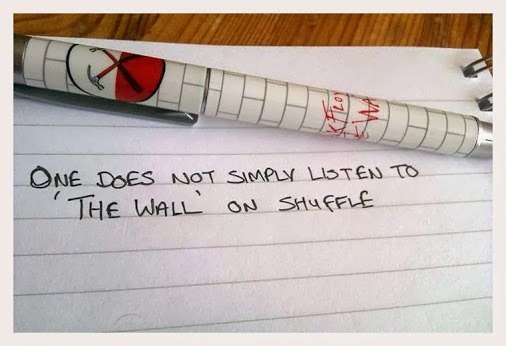 ONE DOES NOT SIMPLY LISTEN TO
'THE WALL' ON SHUFFLE